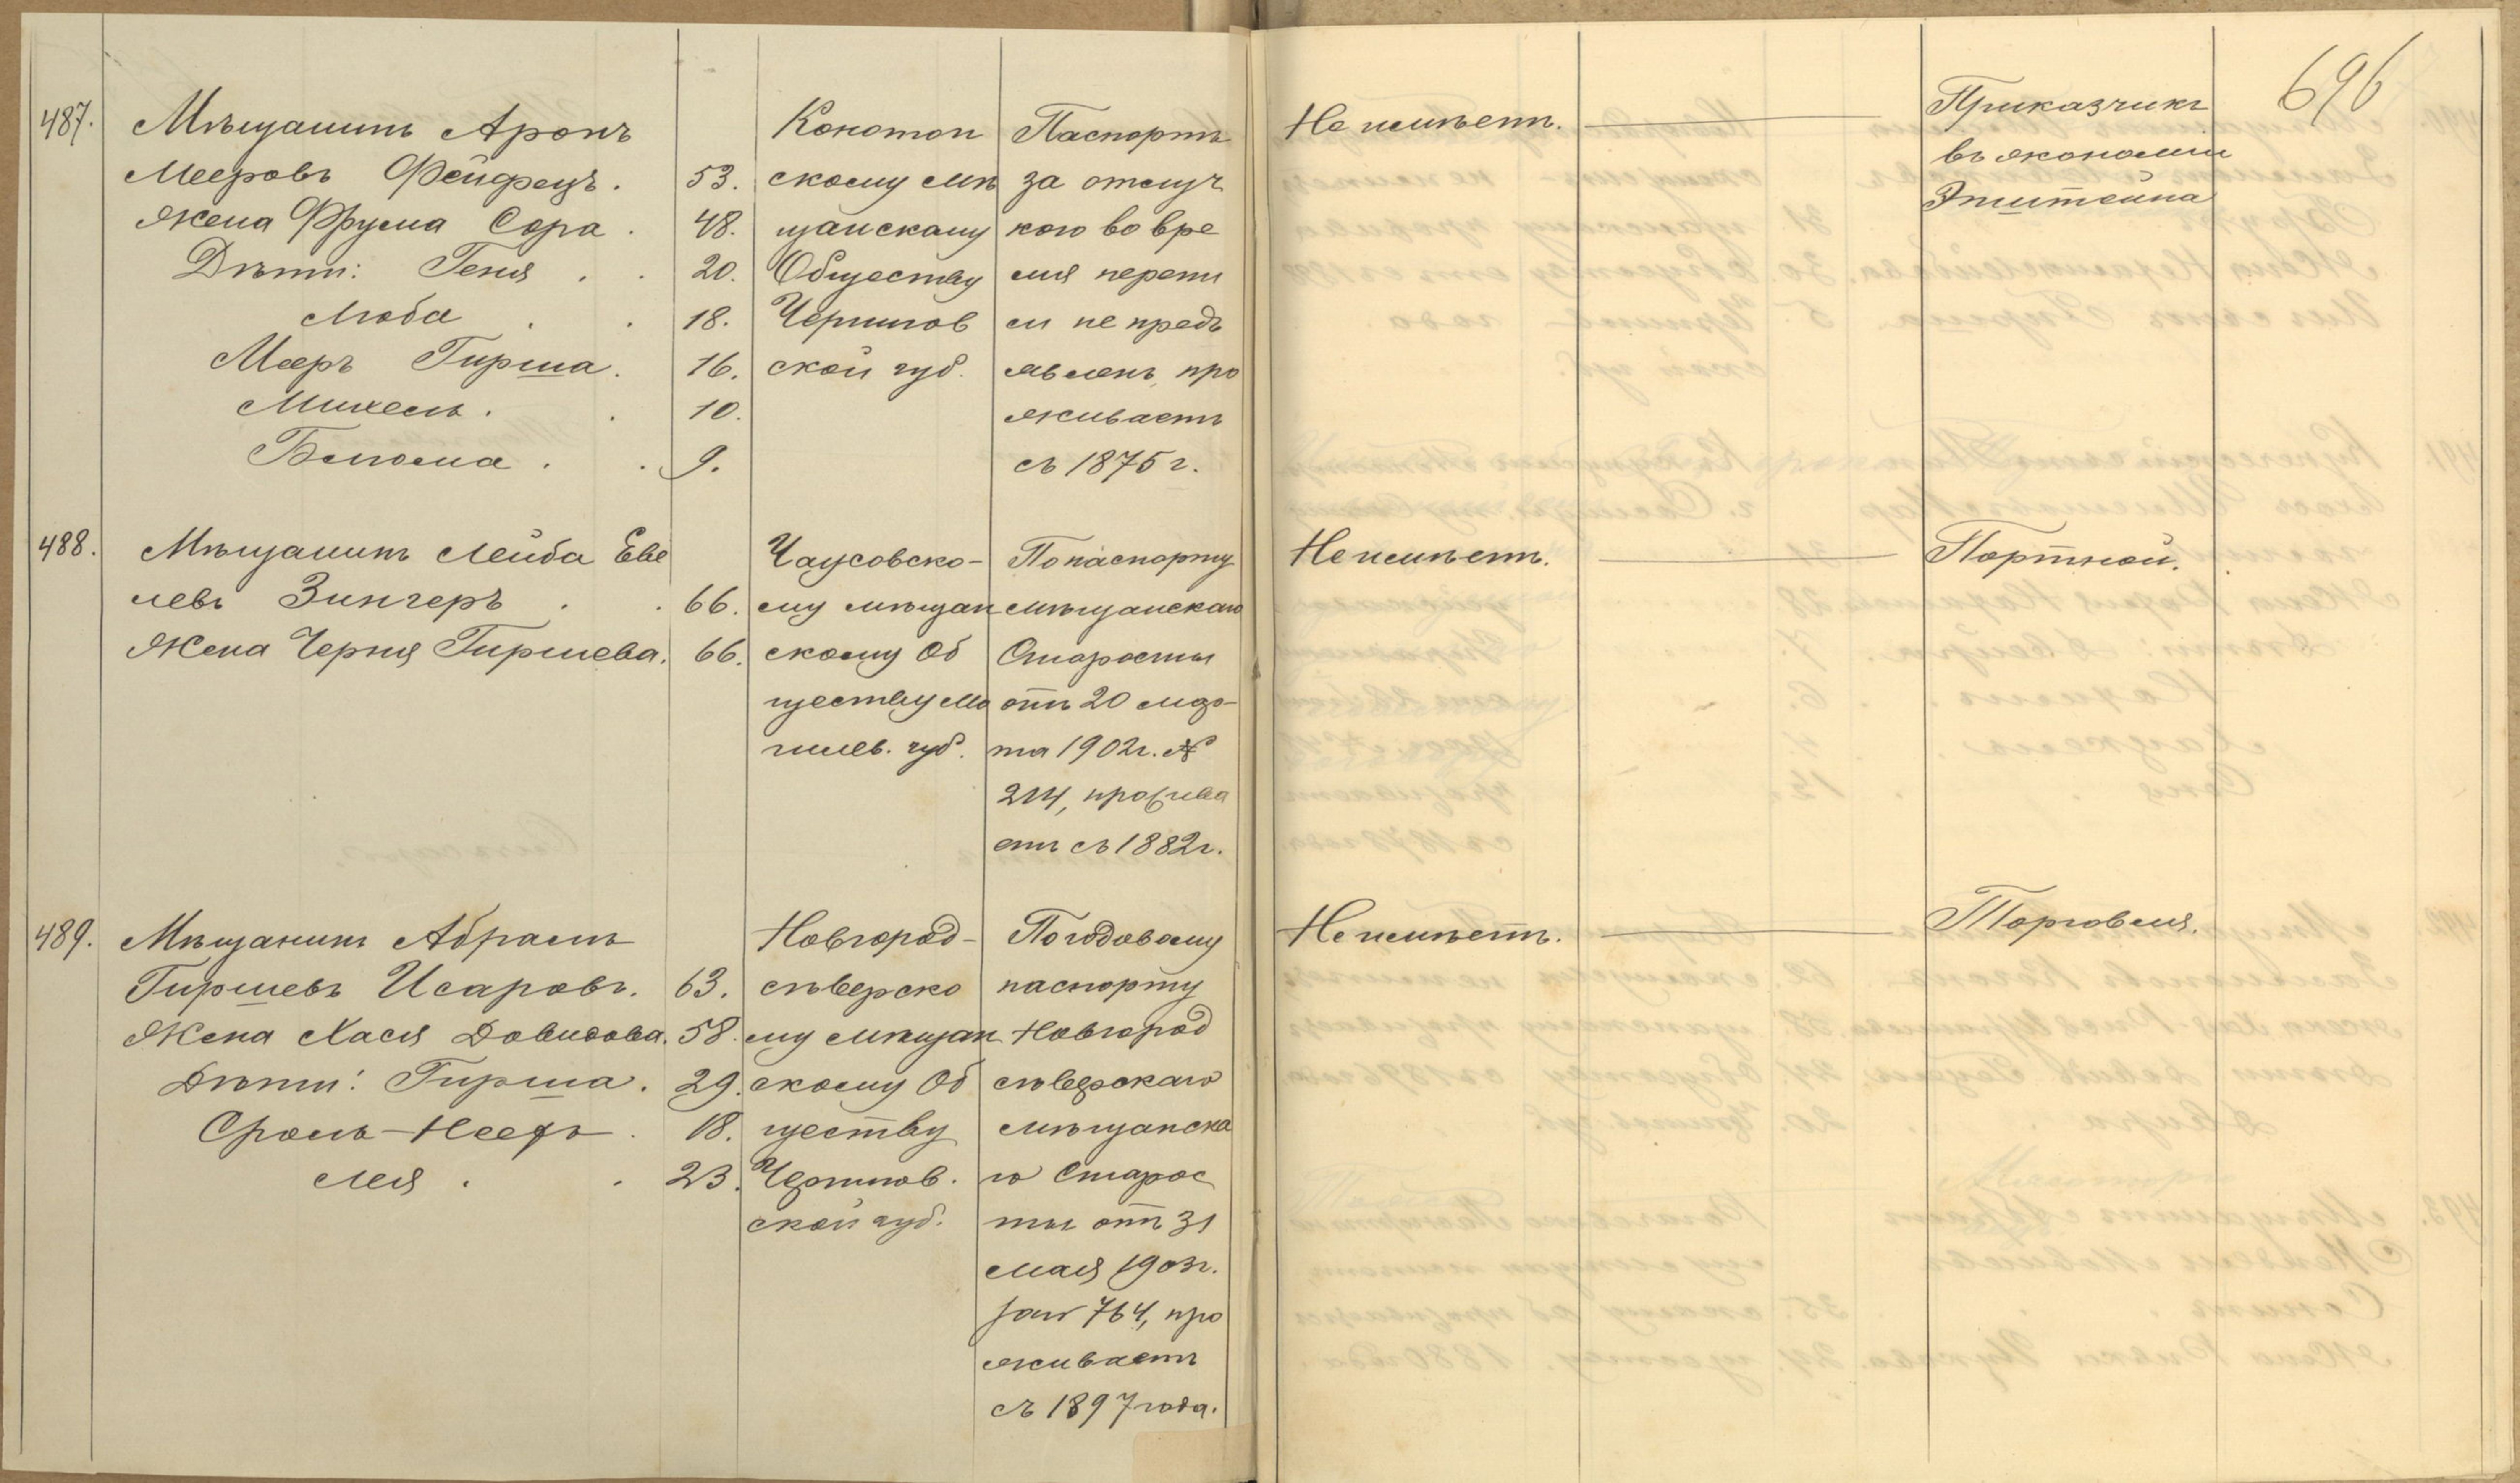 696
487.
Мѣщанинъ Аронъ
Мееровъ Фейфецъ.
53.
Жена Фрума Сора.
48.
Дѣти: Геня.
20.
Люба
18.
Мееръ Гирша.
16.
Михель.
10.
Блюма.
9.
Конотоп
скому мѣ
щанскому
Обществу
Чернигов
ской губ.
Паспортъ
за отлуч
кою во вре
мя перепи
си не предъ
явленъ, про
живаетъ
съ 1875 г.
Не имѣетъ.
Приказчикъ
въ экономіи
Эпштейна
488.
Мѣщанинъ Лейба Еве
левъ Зингеръ
66.
Жена Черня Гиршева.
66.
Чаусовско-
му мѣщан
скому Об
ществу Мо
гилев. губ.
По паспорту
мѣщанскаго
Старосты
отъ 20 мар-
та 1902 г. №
214, прожива
етъ съ 1882 г.
Не имѣетъ.
Портной.
489.
Мѣщанинъ Абрамъ
Гиршевъ Исаровъ.
63.
Жена Хася Довидова.
58.
Дѣти: Гирша.
29.
Сроль-Несефъ
18.
Лея.
23.
Новгород-
сѣверско
му мѣщан
скому Об
ществу
Чернигов.
ской губ.
По годовому
паспорту
Новгород
сѣверскаго
мѣщанска
го Старос
ты отъ 31
мая 1903 г.
за № 764, про
живаетъ
съ 1897 года.
Не имѣетъ.
Торговля.